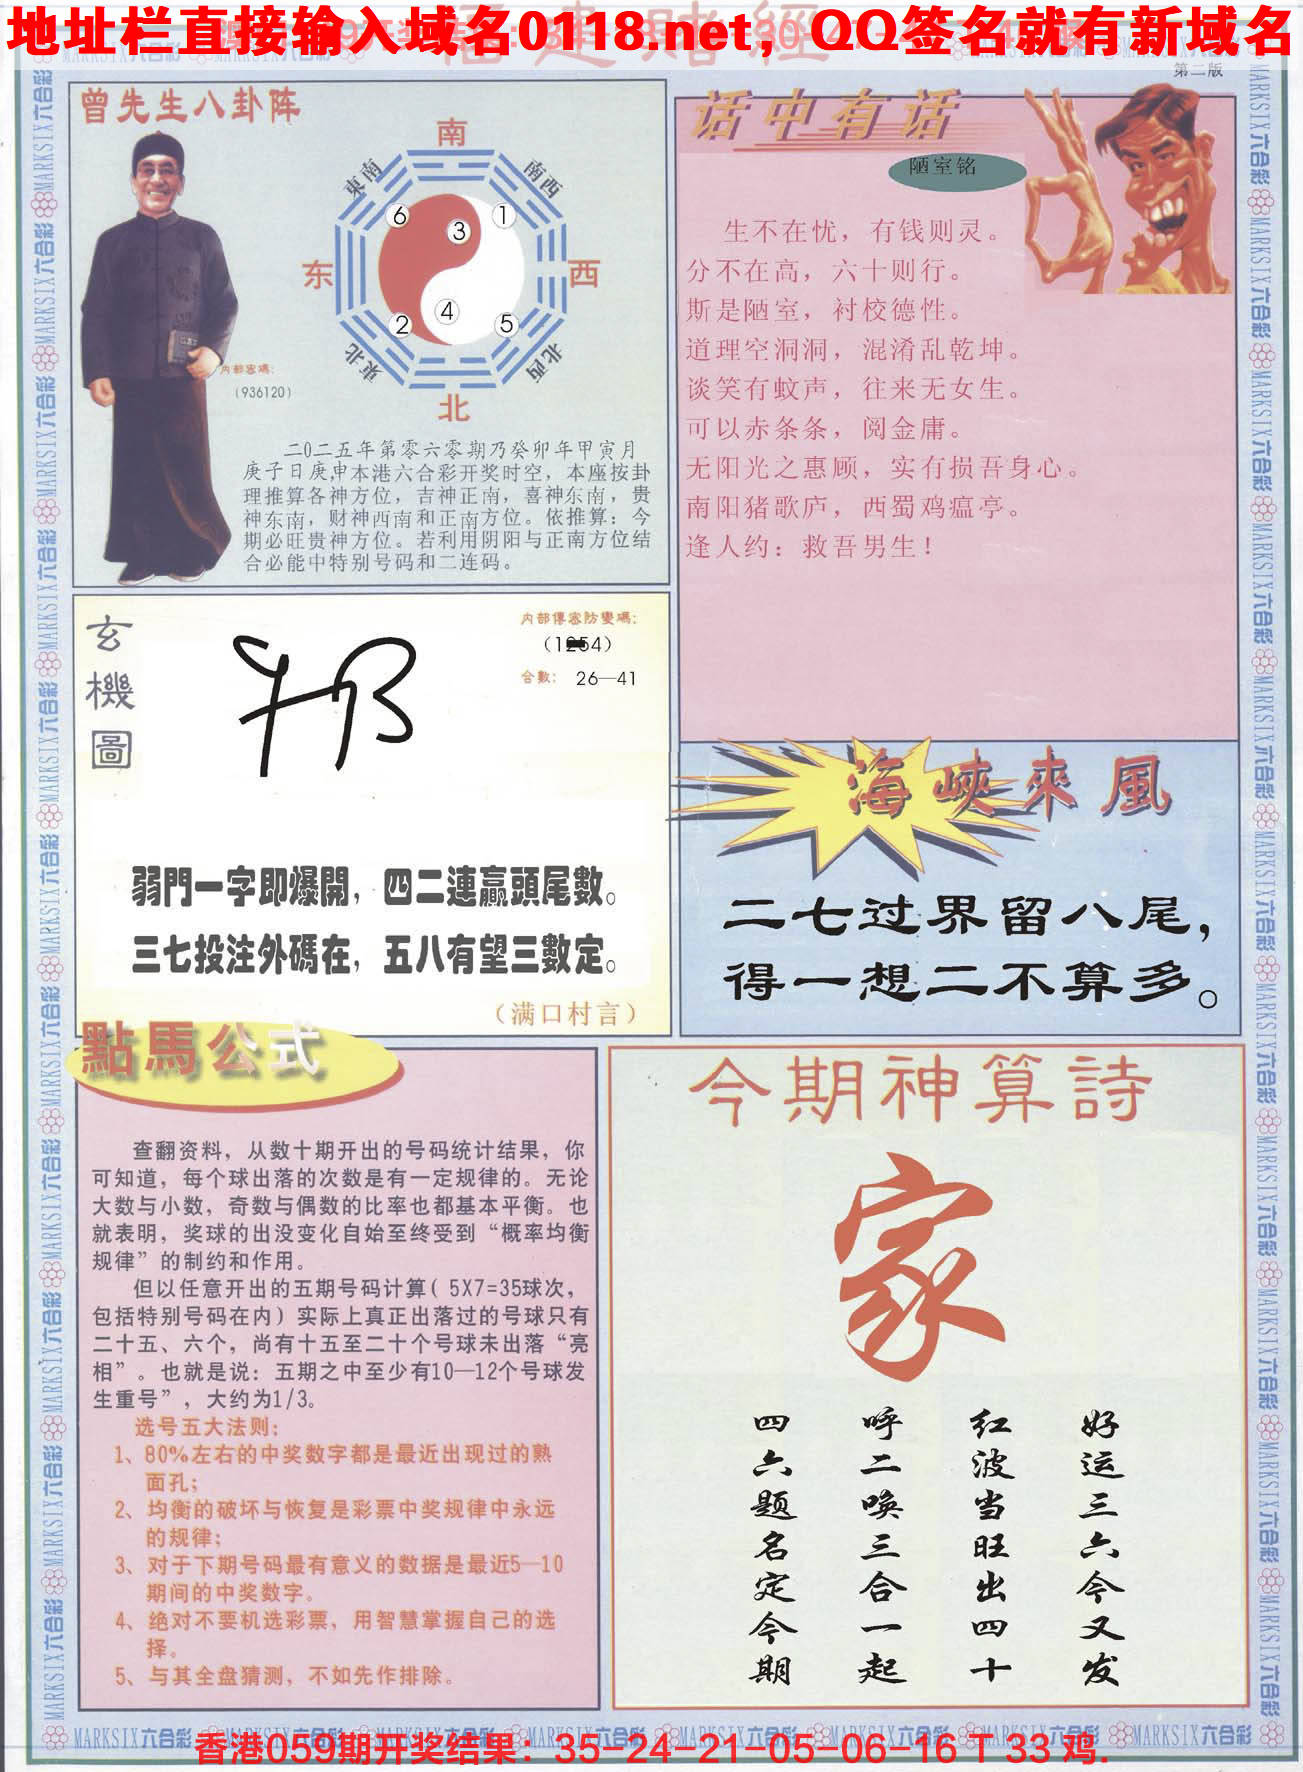 地址栏直接输入域名0118.net，QQ签名就有新域名
第二版
曾先生八卦阵
南
東南
南西
6
3
1
东
西
4
2
5
東北
北西
北
内部密碼：
（936120）
二0二五年第零六零期乃癸卯年甲寅月
庚子日庚申本港六合彩开奖时空，本座按卦
理推算各神方位，吉神正南，喜神东南，贵
神东南，财神西南和正南方位。依推算：今
期必旺贵神方位。若利用阴阳与正南方位结
合必能中特别号码和二连码。
话中有话
陋室铭
生不在忧，有钱则灵。
分不在高，六十则行。
斯是陋室，衬校德性。
道理空洞洞，混淆乱乾坤。
谈笑有蚊声，往来无女生。
可以赤条条，阅金庸。
无阳光之惠顾，实有损吾身心。
南阳猪歌庐，西蜀鸡瘟亭。
逢人约：救吾男生！
玄機圖
内部傳密防變碼：
合數： 26—41
弱門一字即爆開，四二連贏頭尾數。
三七投注外碼在，五八有望三數定。
（满口村言）
海峽來風
二七过界留八尾，
得一想二不算多。
點馬公式
查翻资料，从数十期开出的号码统计结果，你
可知道，每个球出落的次数是有一定规律的。无论
大数与小数，奇数与偶数的比率也都基本平衡。也
就表明，奖球的出没变化自始至终受到“概率均衡
规律”的制约和作用。
但以任意开出的五期号码计算（5X7=35球次，
包括特别号码在内）实际上真正出落过的号球只有
二十五、六个，尚有十五至二十个号球未出落“亮
相”。也就是说：五期之中至少有10—12个号球发
生重号”，大约为1/3。
选号五大法则：
1、80%左右的中奖数字都是最近出现过的熟
面孔；
2、均衡的破坏与恢复是彩票中奖规律中永远
的规律；
3、对于下期号码最有意义的数据是最近5—10
期间的中奖数字。
4、绝对不要机选彩票，用智慧掌握自己的选
择。
5、与其全盘猜测，不如先作排除。
今期神算詩
家
好运三六今又发
红波当旺出四十
呼二唤三合一起
四六题名定今期
香港059期开奖结果：35-24-21-05-06-16 T 33 鸡.